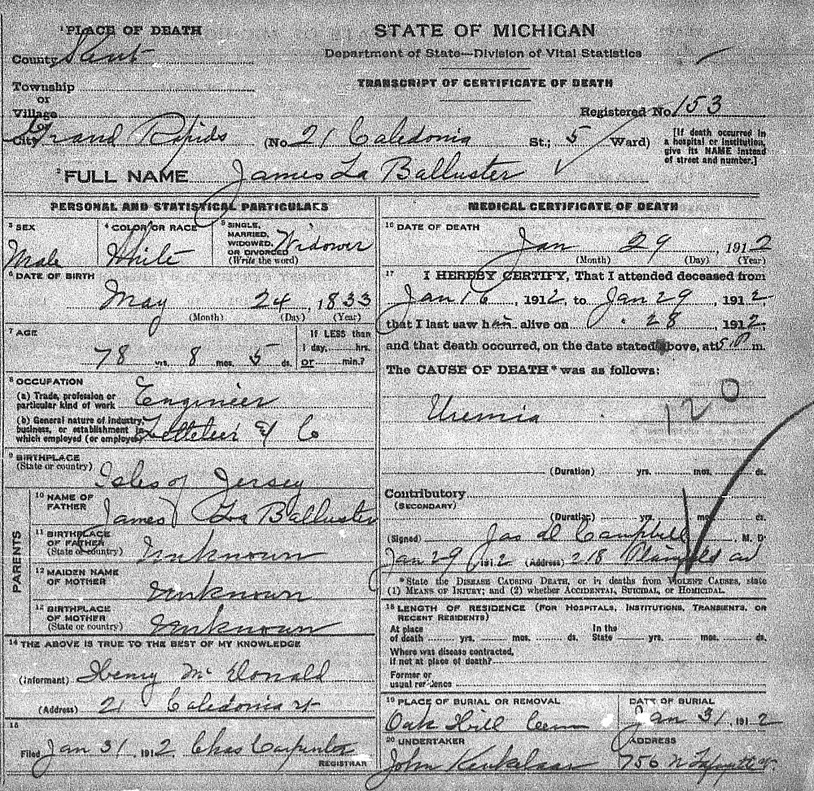 ¹PLACE OF DEATH
STATE OF MICHIGAN
County Kent
Department of State—Division of Vital Statistics
Township
or
Village
TRANSCRIPT OF CERTIFICATE OF DEATH
Registered No 153
City Grand Rapids (No 21 Caledonia St.; 5 Ward)
[If death occurred in a hospital or institution, give its NAME instead of street and number.]
²FULL NAME James La Balluster
PERSONAL AND STATISTICAL PARTICULARS
³ SEX
Male
⁴ COLOR OR RACE
White
⁵ SINGLE, MARRIED, WIDOWED, OR DIVORCED
(Write the word)
Widower
⁶ DATE OF BIRTH
May 24, 1833
(Month) (Day) (Year)
⁷ AGE
78 yrs. 8 mos. 5 ds.
If LESS than
1 day, hrs.
OR min.?
⁸ OCCUPATION
(a) Trade, profession or
particular kind of work Engineer
(b) General nature of industry,
business, or establishment in
which employed (or employer) & Co
⁹ BIRTHPLACE
(State or country) Isles of Jersey
PARENTS
¹⁰ NAME OF
FATHER James La Balluster
¹¹ BIRTHPLACE
OF FATHER
(State or country) Unknown
¹² MAIDEN NAME
OF MOTHER Unknown
¹³ BIRTHPLACE
OF MOTHER
(State or country) Unknown
¹⁴ THE ABOVE IS TRUE TO THE BEST OF MY KNOWLEDGE
(Informant) Henry McDonald
(Address) 21 Caledonia st
¹⁵
Filed Jan 31, 1912 Chas Carpenter
REGISTRAR
MEDICAL CERTIFICATE OF DEATH
¹⁶ DATE OF DEATH
Jan 29, 1912
(Month) (Day) (Year)
¹⁷ I HEREBY CERTIFY, That I attended deceased from
Jan 16, 1912, to Jan 29, 1912
that I last saw him alive on 28, 1912
and that death occurred, on the date stated above, at 5 P m.
The CAUSE OF DEATH* was as follows:
Uremia 120
(Duration) yrs. mos. ds.
Contributory
(SECONDARY)
(Duration) yrs. mos. ds.
(Signed) Jas D Campbell, M. D.
Jan 29 1912 (Address) 218 Plainfield av
*State the DISEASE CAUSING DEATH, or in deaths from VIOLENT CAUSES, state
(1) MEANS OF INJURY; and (2) whether ACCIDENTAL, SUICIDAL, or HOMICIDAL.
¹⁸ LENGTH OF RESIDENCE (FOR HOSPITALS, INSTITUTIONS, TRANSIENTS, OR
RECENT RESIDENTS)
At place
of death yrs. mos. ds.
In the
State yrs. mos. ds.
Where was disease contracted,
if not at place of death?
Former or
usual residence
¹⁹ PLACE OF BURIAL OR REMOVAL
Oak Hill Cem
DATE OF BURIAL
Jan 31, 1912
²⁰ UNDERTAKER
John
ADDRESS
756 N Lafayette